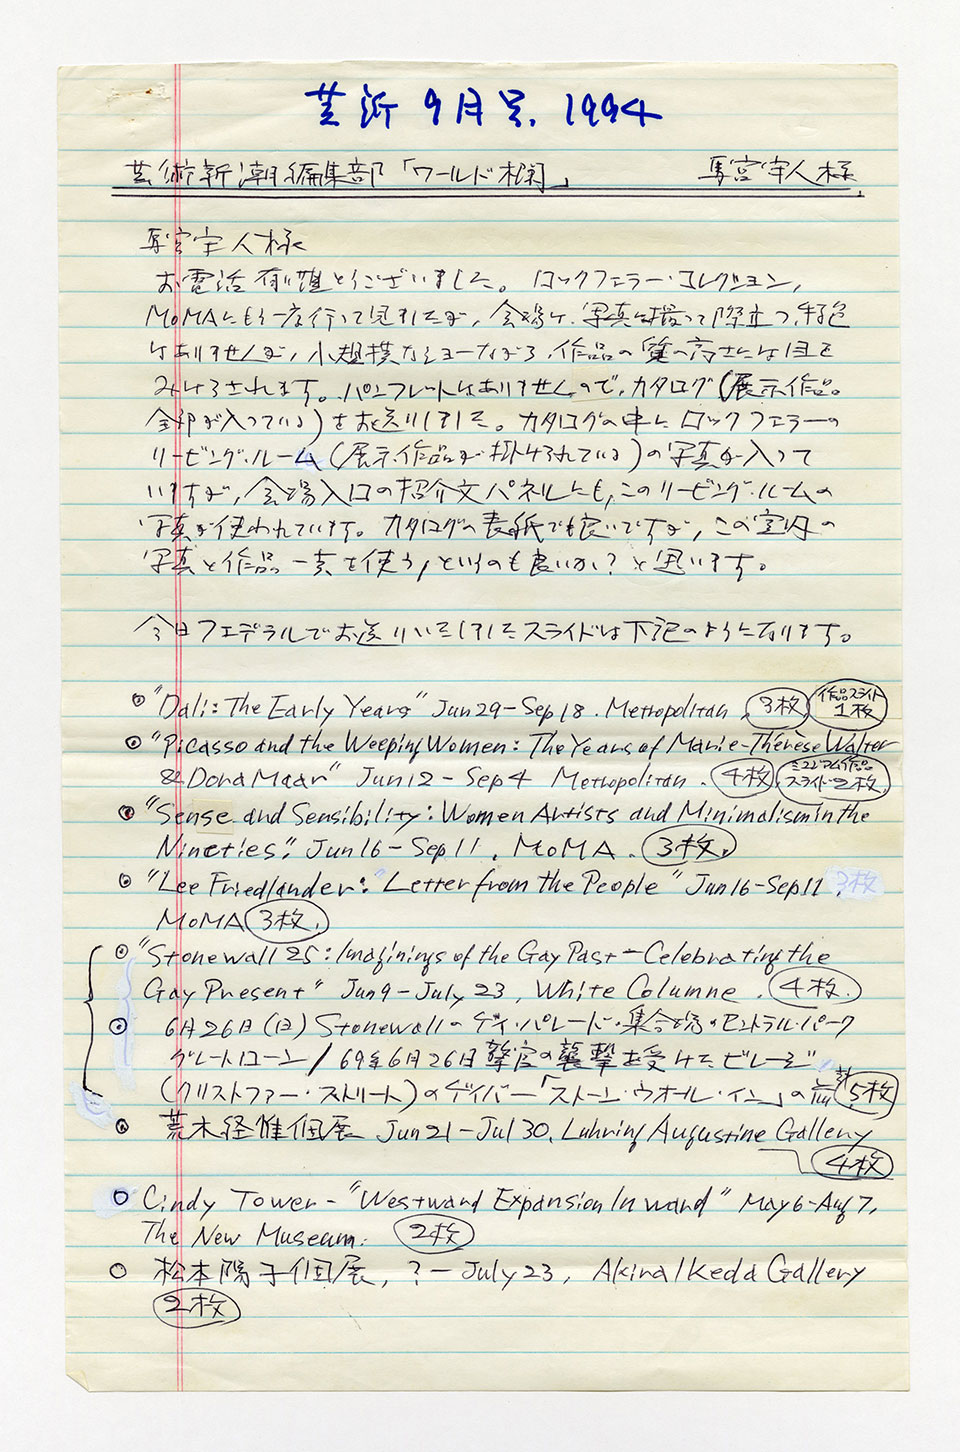 芸新 9月号. 1994
芸術新潮編集部「ワールド欄」 馬宮守人様
馬宮守人様
お電話有難とうございました。ロックフェラー・コレクション,
MoMAにもう一度行って見ましたが, 会場は, 写真に撮って際立つ特色
はありませんが, 小規模なショーながら, 作品の質の高さには目を
みはらされます。パンフレットはありませんので, カタログ(展示作品
全部が入っている)をお送りしました。カタログの中に ロックフェラーの
リービング・ルーム (展示作品が掛けられている)の写真が入って
いますが, 会場入口の紹介文パネルにも, このリービング・ルームの
写真が使われています。カタログの表紙でも良いですが, この室内の
写真と作品一点を使う, というのも良いか? と思います。
今日フェデラルでお送りいたしましたスライドは下記のようになります。
"Dali: The Early Years" Jun 29-Sep 18. Metropolitan 3枚 作品スライド 1枚
"Picasso and the Weeping Women: The Years of Marie-Thérèse Walter
& Dora Maar" Jun 12-Sep 4 Metropolitan. 4枚 スライド2枚
"Sense and Sensibility: Women Artists and Minimalism in the
Nineties." Jun 16-Sep 11, MoMA. 3枚.
"Lee Friedlander: "Letter from the People" Jun 16-Sep 11, 3枚
MoMA 3枚.
"Stonewall 25: Imaginings of the Gay Past - Celebrating the
Gay Present" Jun 9-July 23, White Columne. 4枚.
6月26日(日) Stonewallのゲイ・パレード・集合場のセントラル・パーク
グレートローン / 69年6月26日警官の襲撃を受けたビレージ
(クリストファー・ストリート)のゲイバー「ストーン・ウオール・イン」の前 計5枚
荒木経惟個展 Jun 21-Jul 30, Luhring Augustine Gallery
4枚
Cindy Tower - "Westward Expansion Inward" May 6-Aug 7,
The New Museum. 2枚
松本陽子個展, ?-July 23, Akira Ikeda Gallery
2枚